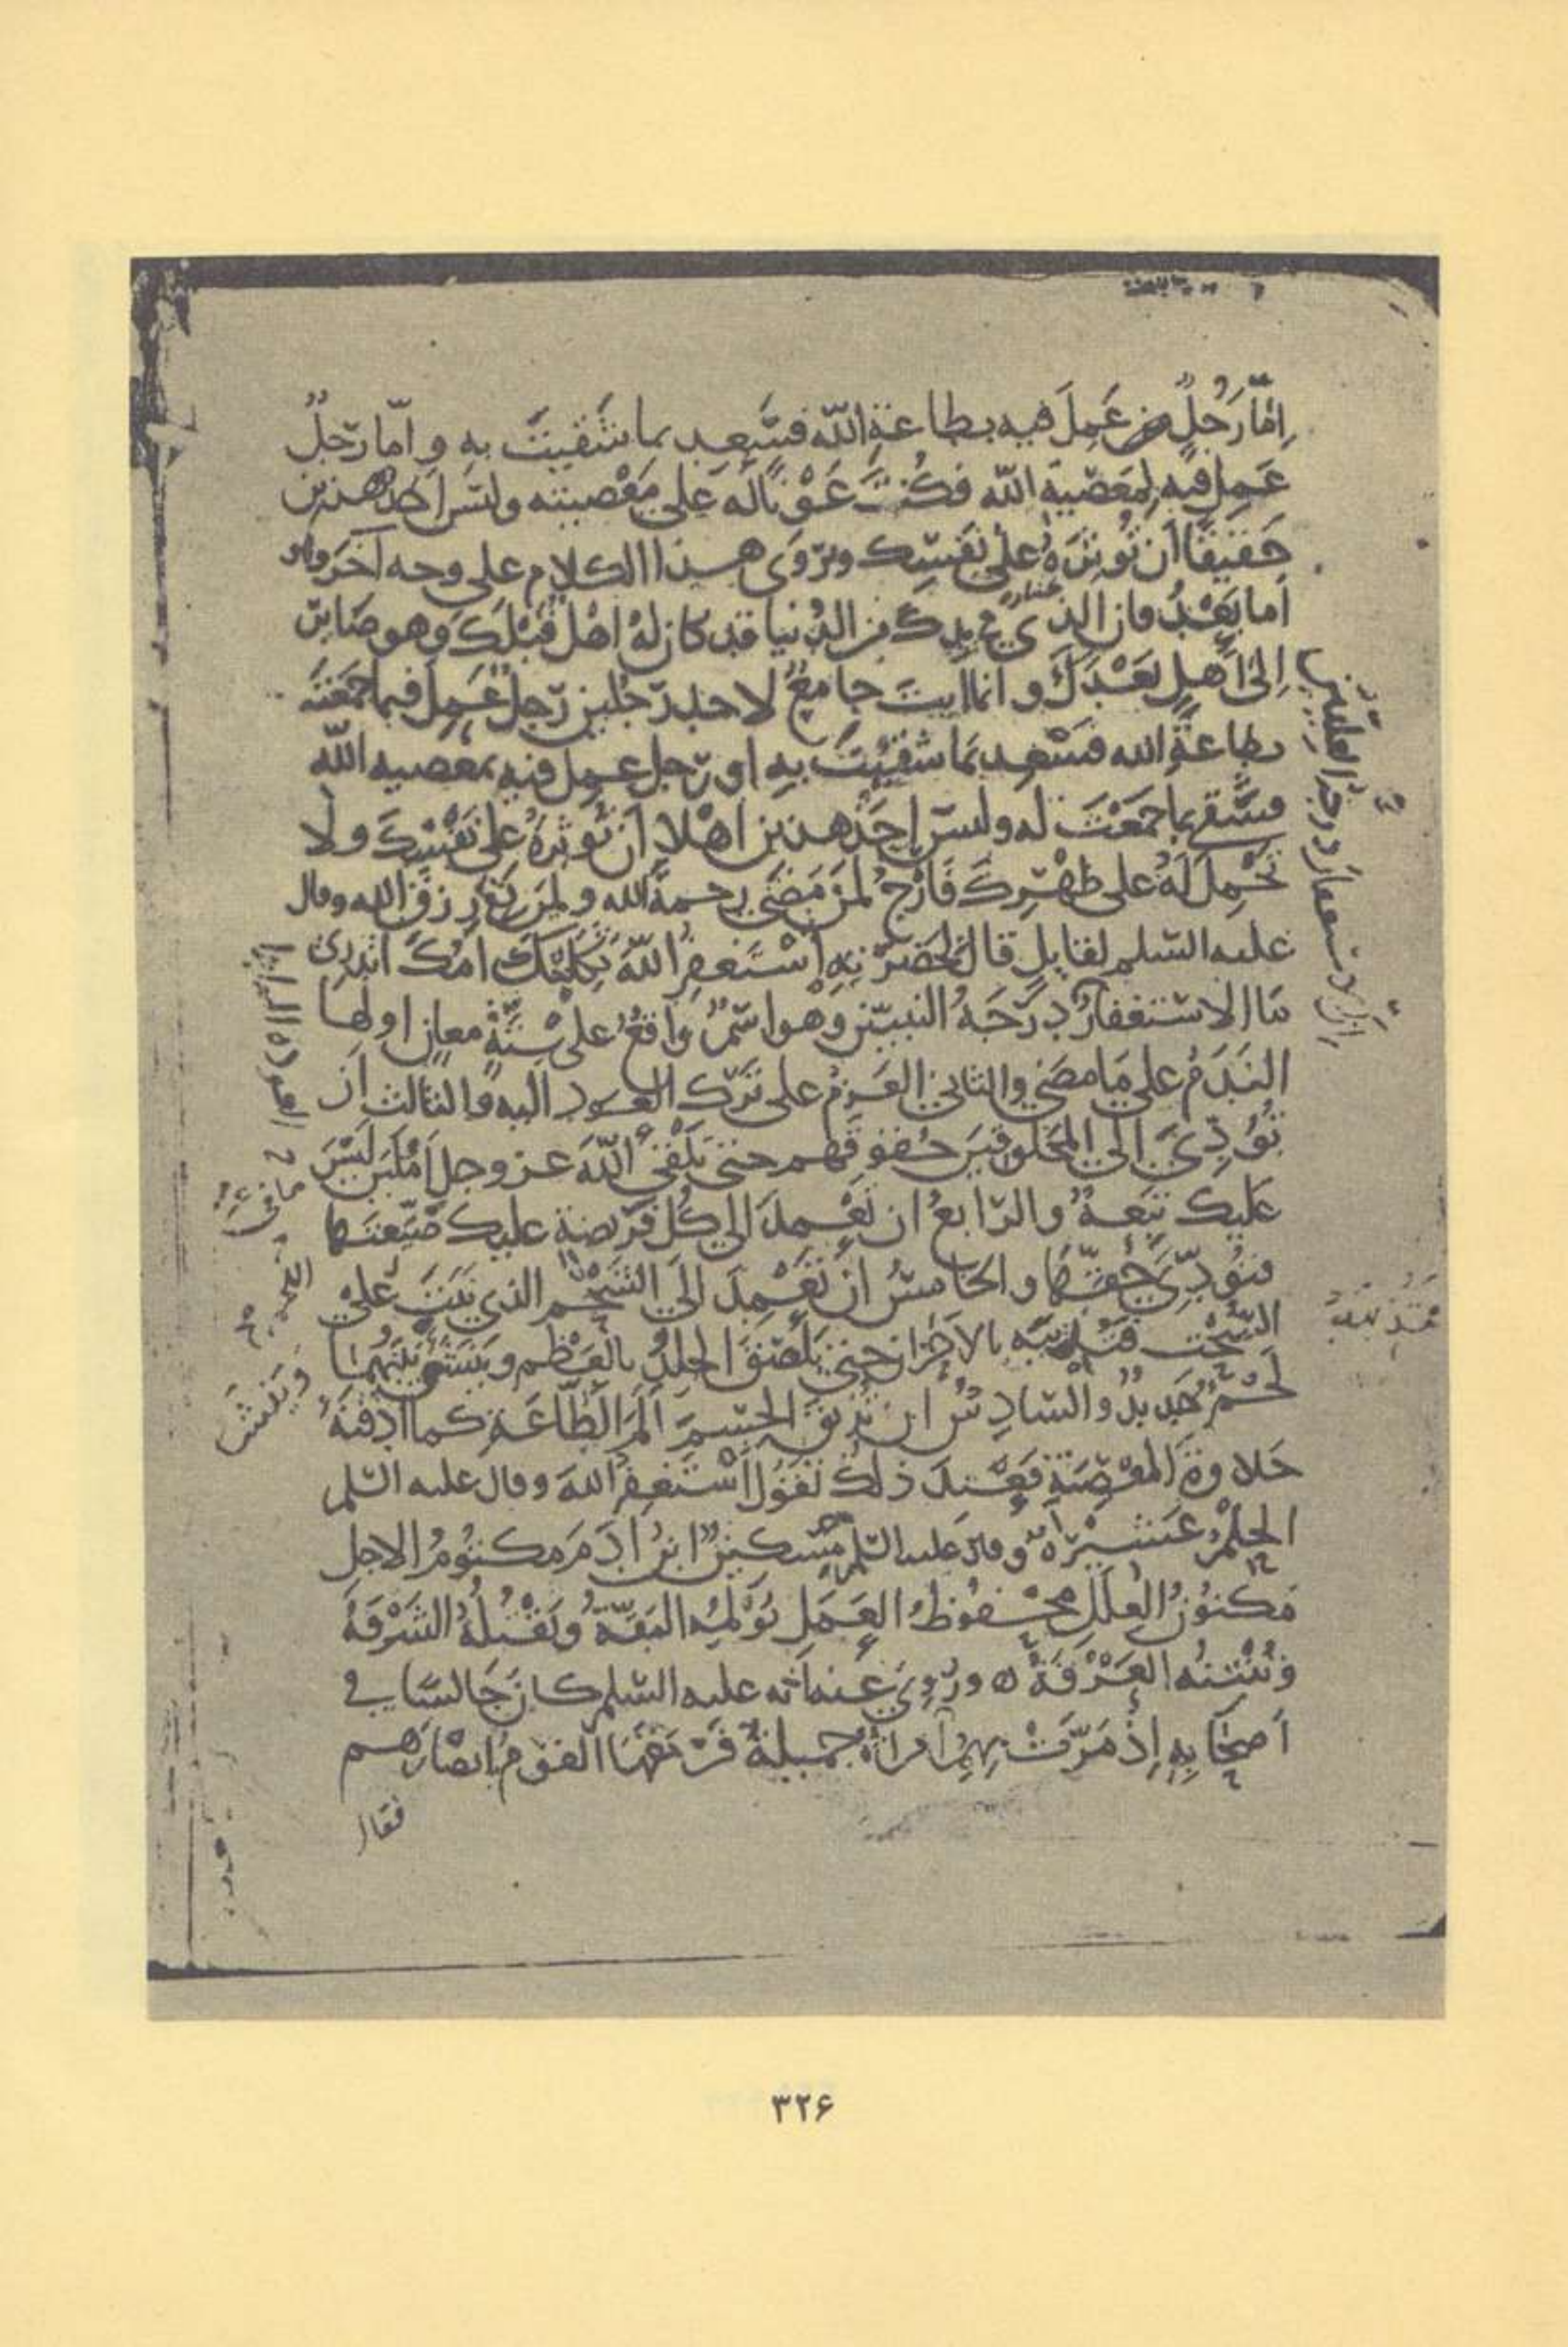 اِمّا رَجُلٍ عَمِلَ فيه بطاعةِ اللّه فسَعِد بما شَقيتَ به و امّا رَجُلٌ
عَمِلَ فيه بمَعْصيةِ اللّه فكُنتَ عَوْنًا لَهُ على مَعْصيته وليس احد هذين
حَقيقًا اَن تُوثِرَهُ على نَفسِك ويُرْوَى هذا الكلام على وجه آخر وهو
اما بَعْدُ فان الذي في يدك من الدُنيا قد كان لهُ اهْل قَبْلَكَ وهو صَاير
اِلى اَهلٍ بَعْدَكَ و انما انت جامعٌ لاحد رَجُلين رَجلٌ عَمِلَ فيما جَمَعْتَه
بطاعةِ الله فسَعِد بمَا شَقيْتَ بهِ او رَجل عمل فيه بمعصيه اللّه
فشَقى بما جَمَعْتَ له وليس اَحَدُ هذين اهْلا اَن تُوثِرَهُ على نَفْسِكَ ولا
تَحْمِلَ لَهُ على ظَهْرِكَ فَارْجُ لمَن مَضَى رحمةَ الله ولمَن بَقى رزقَ الله وقال
عليه السّلم لقايلٍ قال بحَضرَتِهِ اَسْتَغفِرُ اللّهَ ثَكِلَتْكَ امُكَ اتدرى
مَا الاسْتغفارُ دَرَجَةُ العليين وهو اسْمٌ واقعٌ على سِتّةِ معانٍ اولها
النَدَمُ على مَا مضَى والثاني العَزمُ على تَرْك العود اليه والثالث اَن
تُؤَدِّيَ اِلى المخلوقين حُقوقَهم حتى تلْقى اللّهَ عز وجل اَمْلَسَ لَيْسَ
عَليك تَبِعَةٌ والرّابعُ ان تَعْمِدَ الى كُل فَرْيضةٍ عليك ضَيّعتَها
فتُؤدّيَ حَقّها والخامسُ اَن تَعْمِدَ اِلَى اللّحْم الذي نَبَتَ على
السُّحْت فتُذيبَه بالاَحْزان حتى يَلْصَقَ الجلدُ بالعَظْم ويَنشَأ بَيْنَهما
لَحْمٌ جَديدٌ والسّادِسُ ان تُذيقَ الجسْمَ اَلَمَ الطّاعَةِ كما اَذقْتَهُ
حَلاوةَ المعْصِيَةِ فعِنْدَ ذلك تقُولُ اَسْتَغفِرُ اللّهَ وقال عليه السّلم
الحِلْمُ عَشيرَةٌ وقال عليه السّلم مِسْكينٌ ابنُ ادَمَ مَكتُومُ الاجل
مَكنوُنُ العِلَلِ محْفوُظُ العَمَلِ تُؤلمُه البَقّةُ وتَقْتُلُهُ الشَرْقَةُ
وتُنْتنُه العَرْقَةُ ه ورُوِيَ عنه اَنّه عليه السّلم كان جَالسًا في
اَصحَابِهِ اِذْ مَرّتْ بِهِمُ امراَةٌ جَميلةٌ فَرَمَقَهَا القومُ بابصَارهم
فقال
٣٢۶